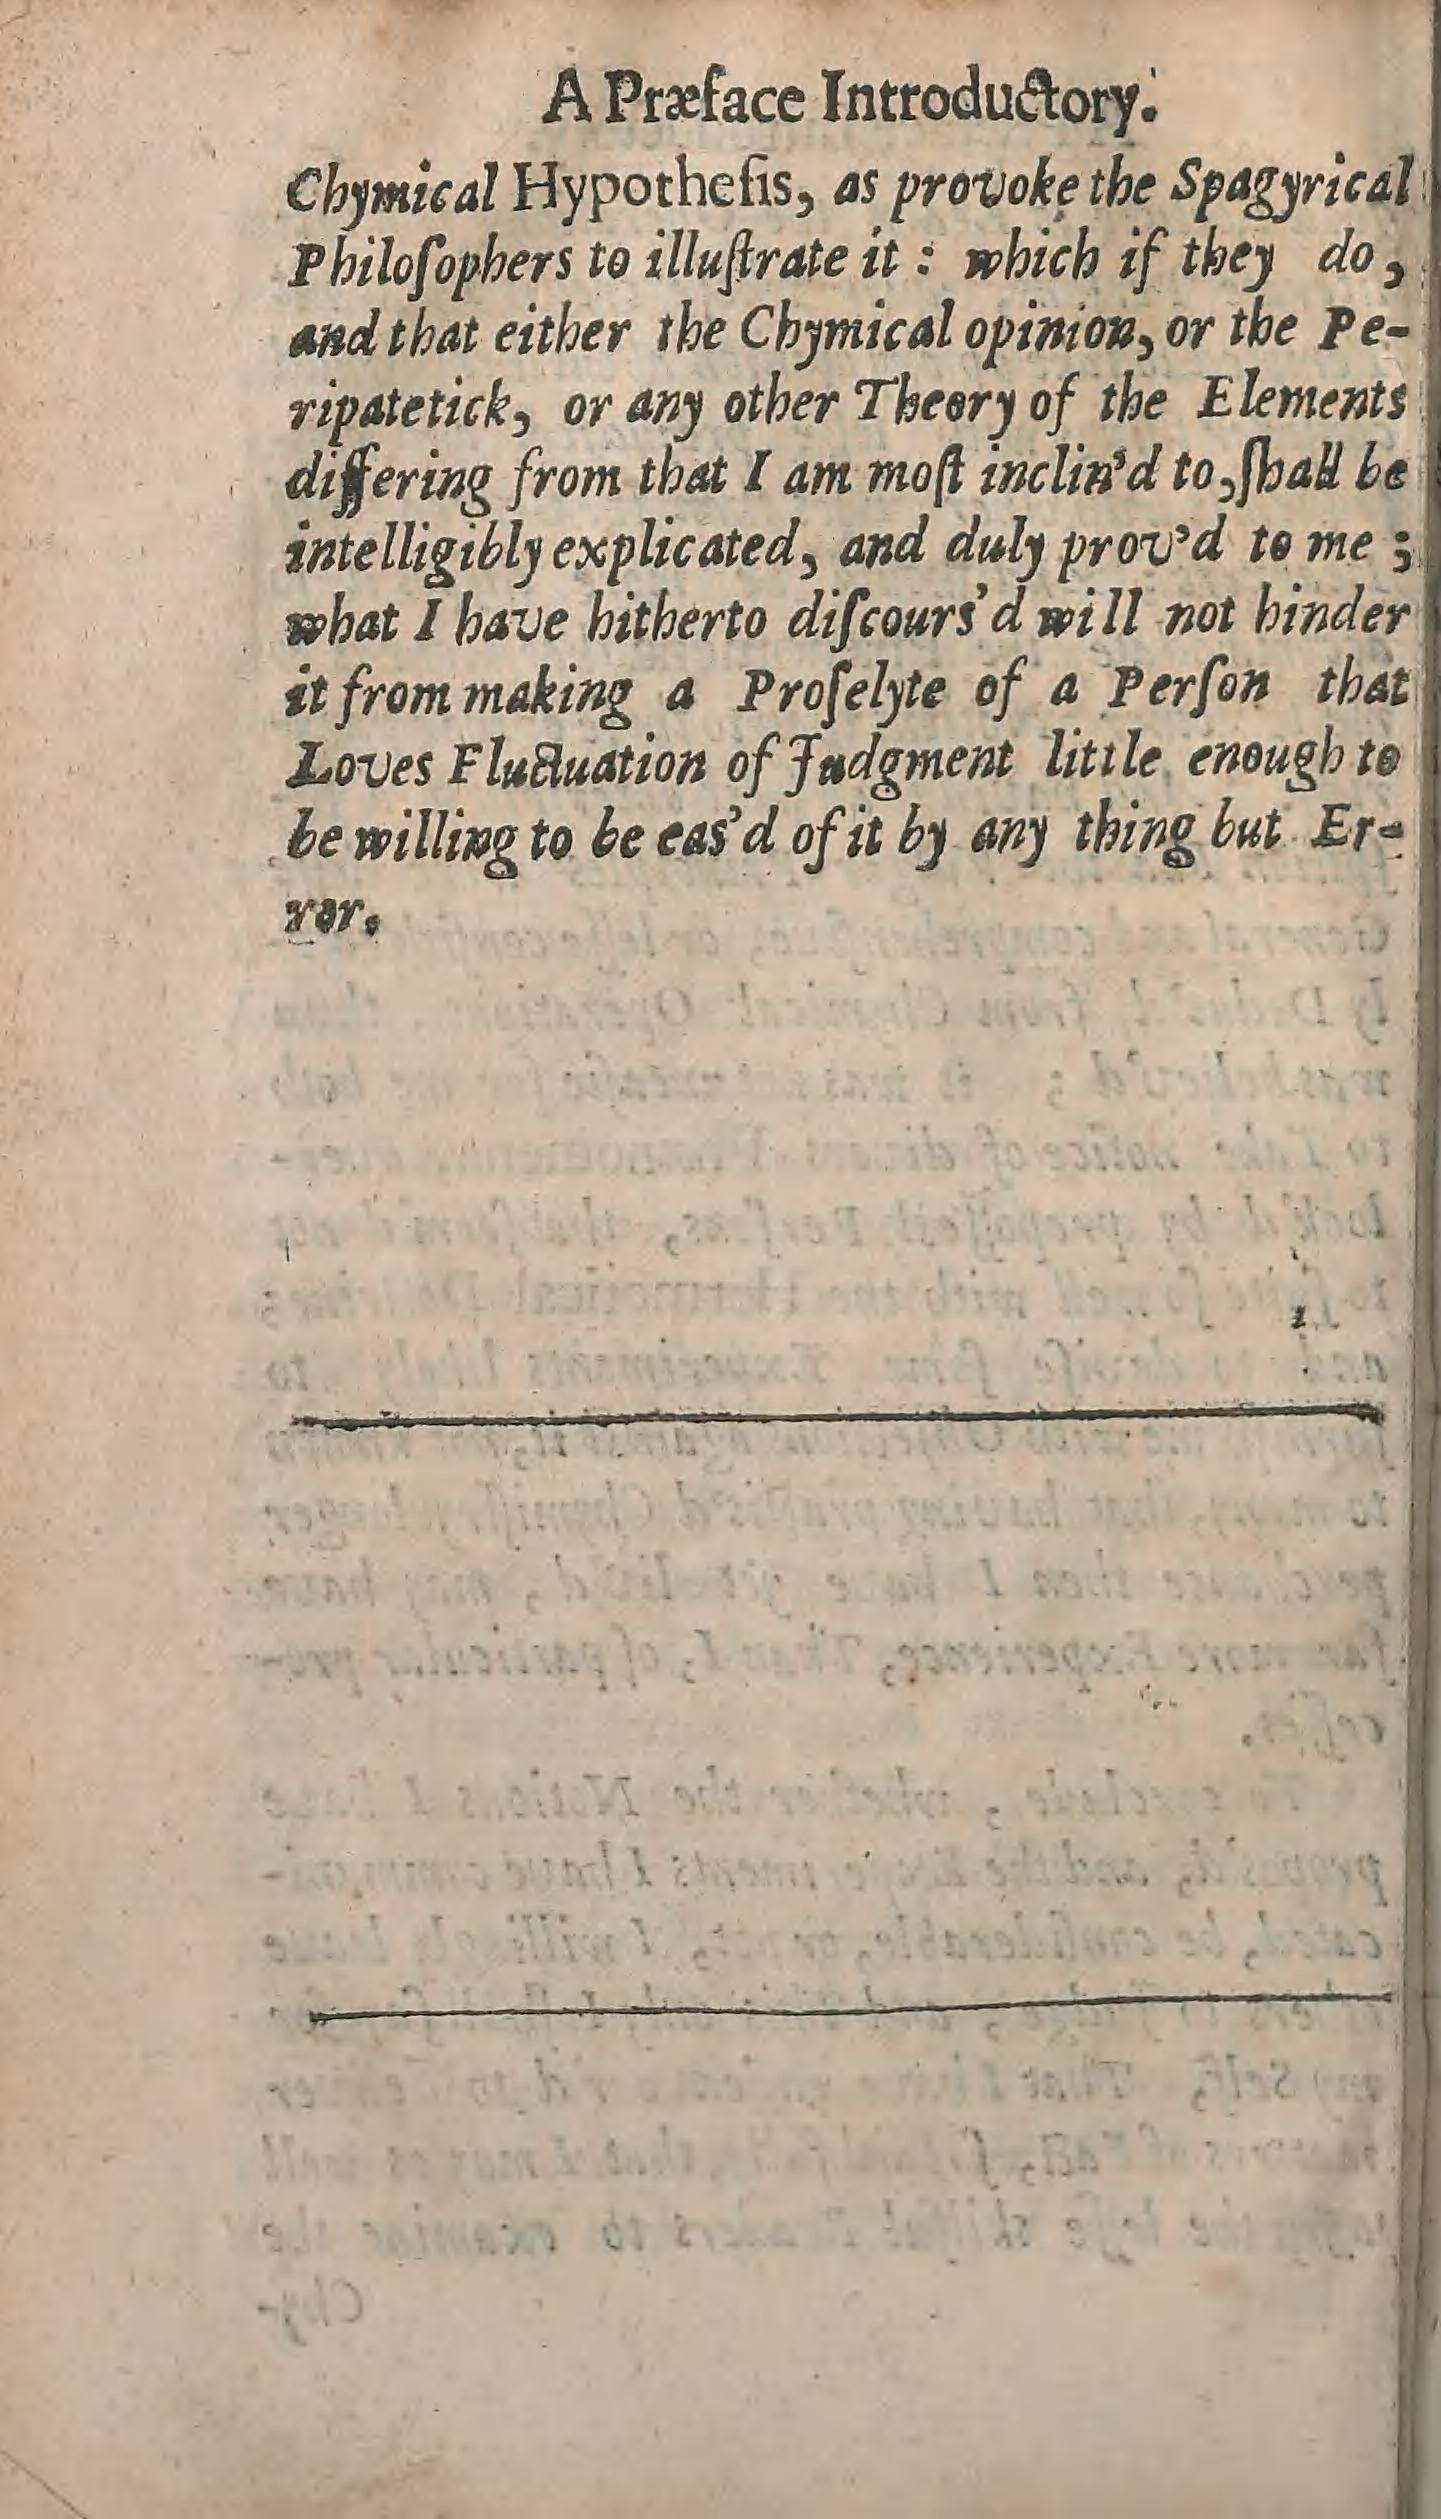 A Præface Introductory.
Chymical Hypothesis, as provoke the Spagyrical
Philoſophers to illuſtrate it : which if they do,
and that either the Chymical opinion, or the Pe-
ripatetick, or any other Theory of the Elements
differing from that I am moſt inclin'd to, ſhall be
intelligibly explicated, and duly prov'd to me ;
what I have hitherto diſcours'd will not hinder
it from making a Proſelyte of a Perſon that
Loves Fluctuation of Judgment little enough to
be willing to be eas'd of it by any thing but Er-
ror.